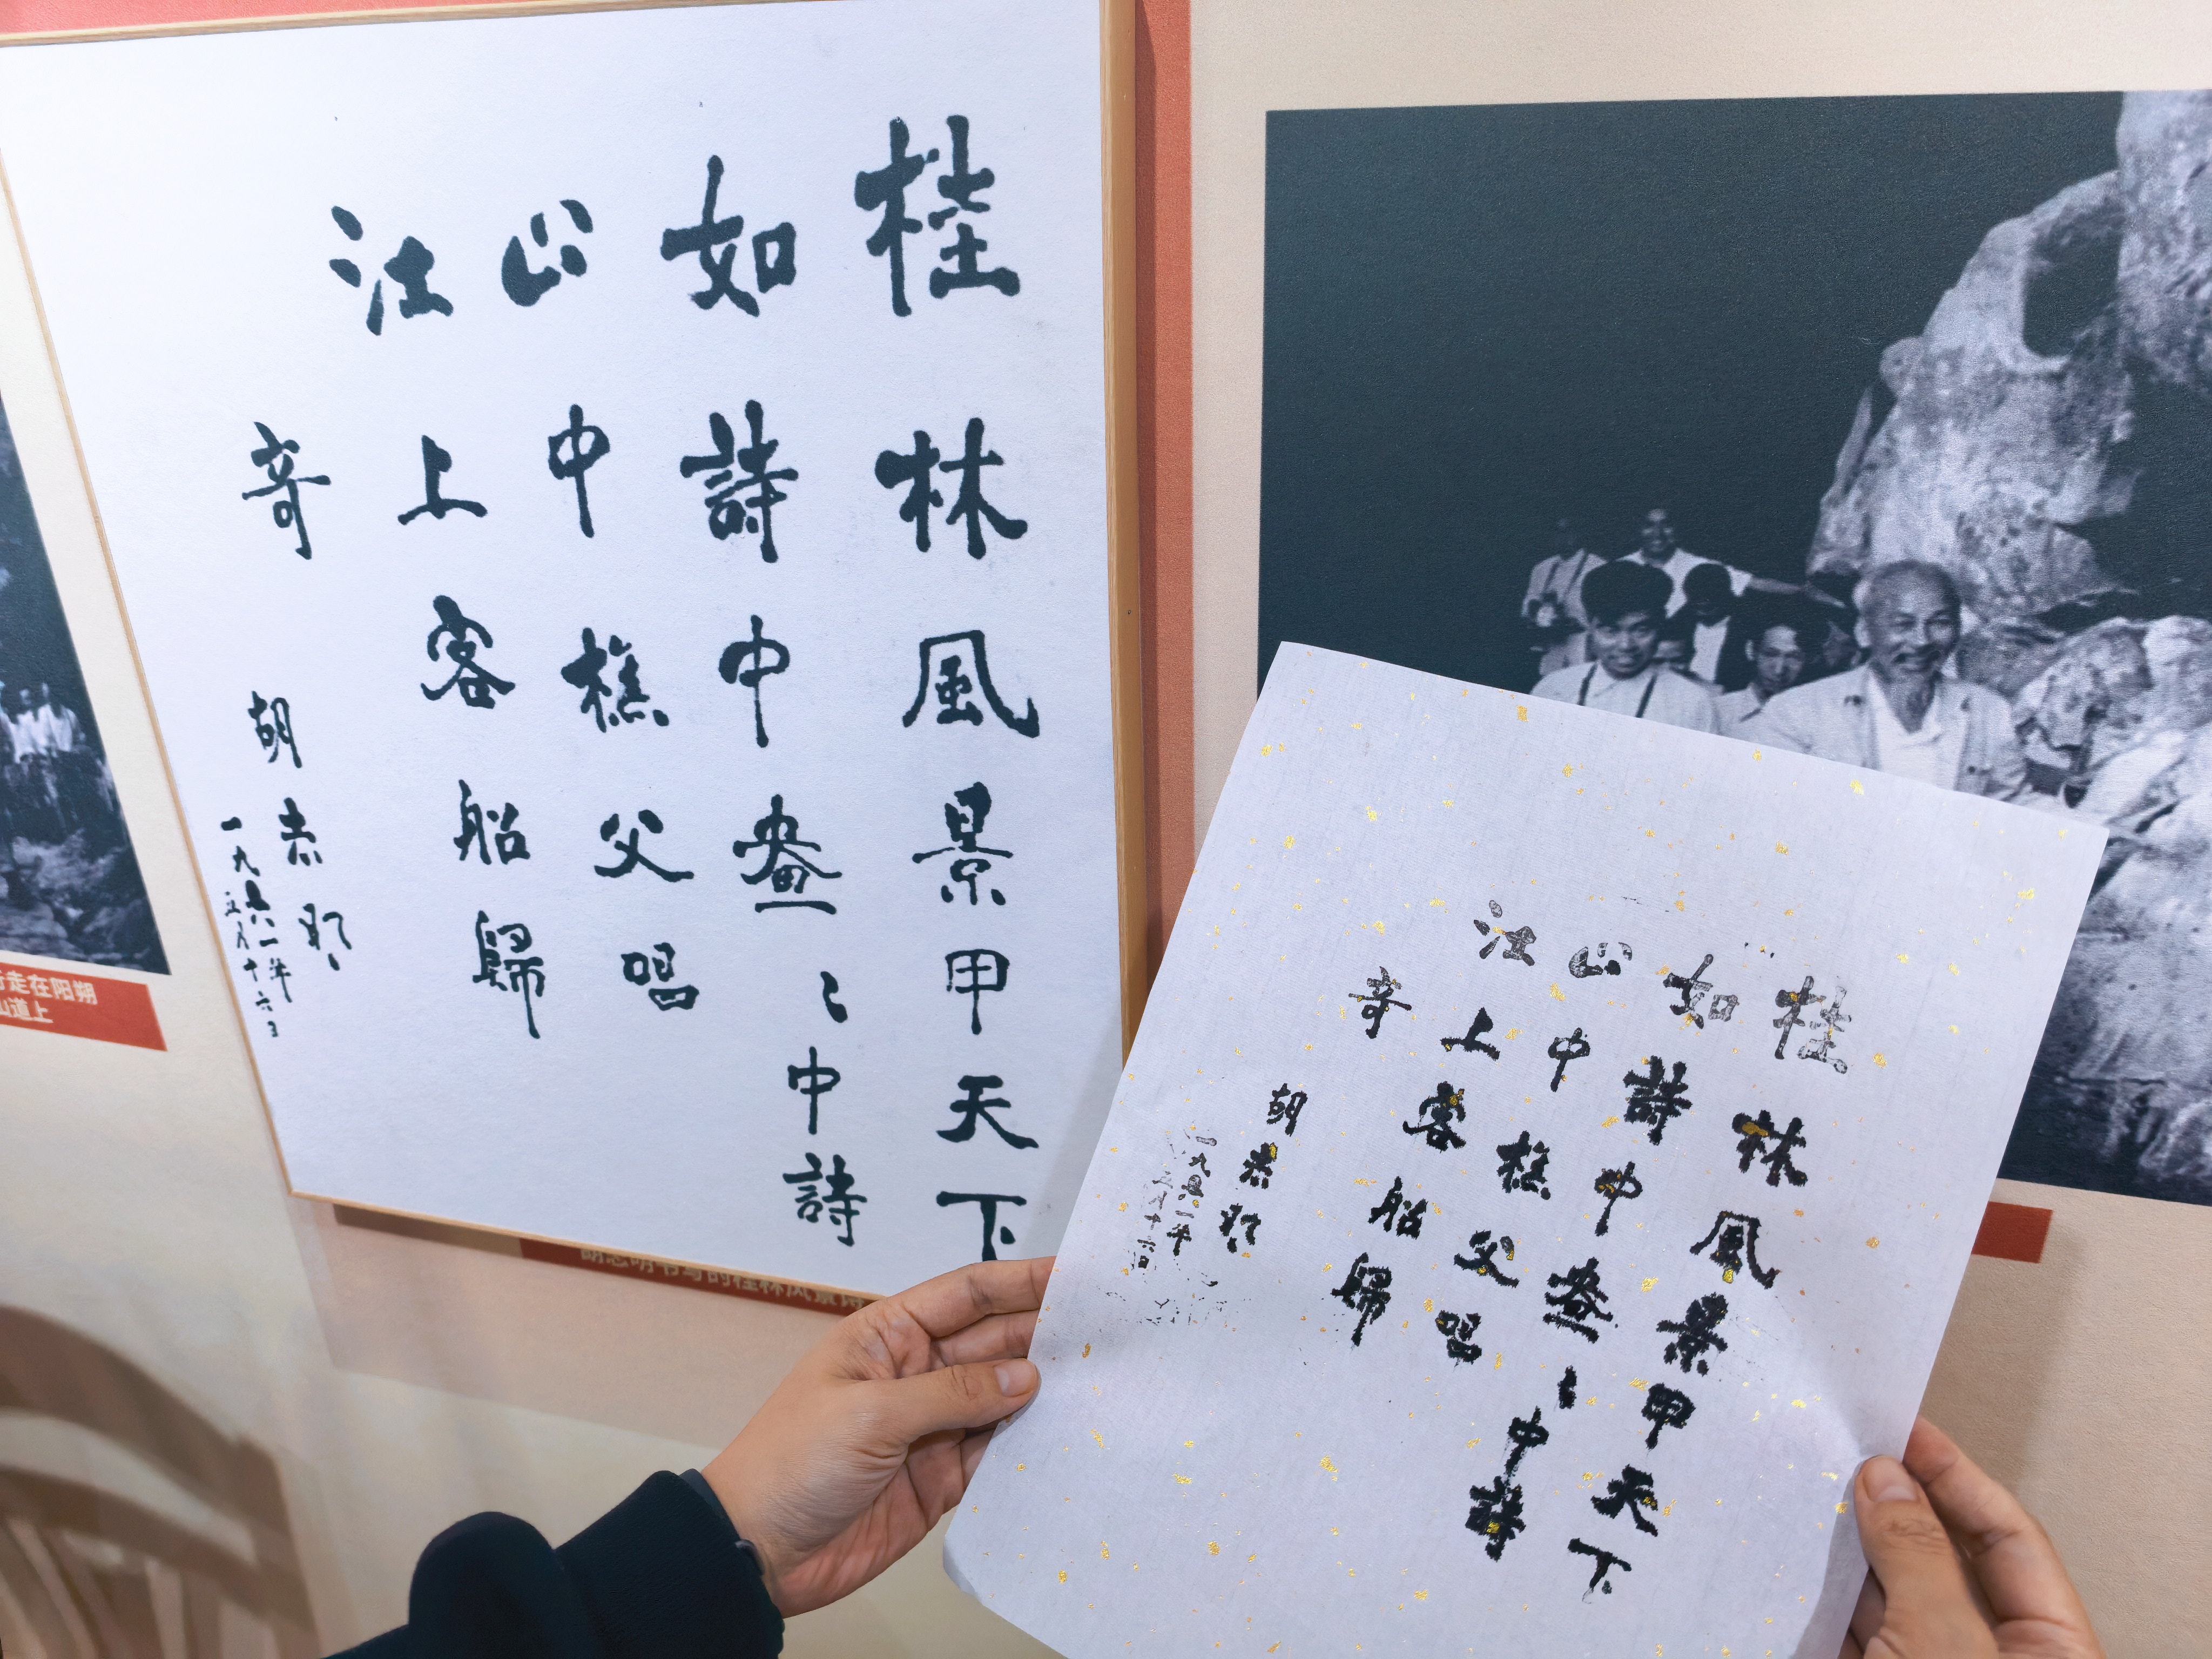 走在阳朔
山道上
桂林風景甲天下
如詩中畫〻中詩
山中樵父唱
江上客船歸
奇
胡志明
一九六一年
五月十六日
胡志明书写的桂林风景诗
桂林風景甲天下
如詩中畫〻中詩
山中樵父唱
江上客船歸
奇
胡志明
一九六一年
五月十六日